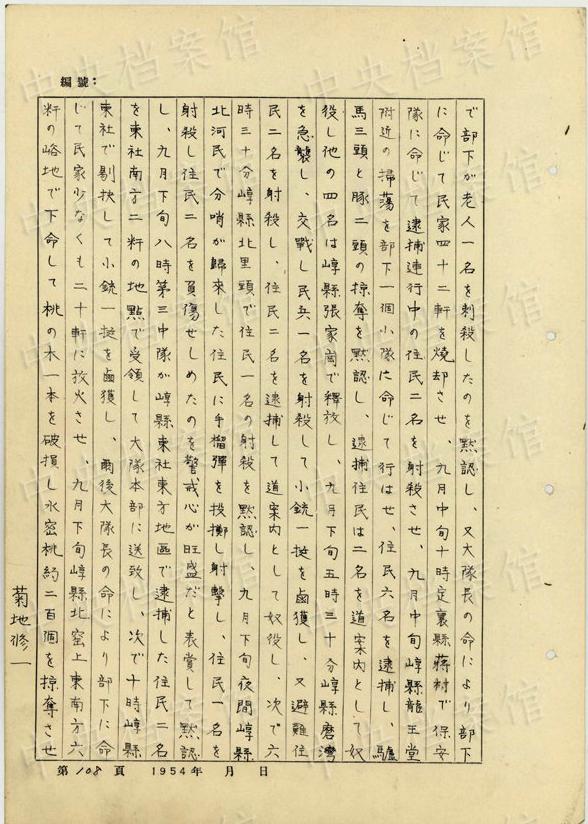 編號：
で部下が老人一名を刺殺したのを黙認し、又大隊長の命により部下
に命じて民家四十二軒を燒却させ、九月中旬十時定襄縣蔣村で保安
隊に命じて逮捕連行中の住民二名を射殺させ、九月中旬崞縣龍王堂
附近の掃蕩を部下一個小隊に命じて行はせ、住民六名を逮捕し、驢
馬三頭と豚二頭の掠奪を黙認し、逮捕住民は二名を道案内として奴
役し他の四名は崞縣張家崗で釋放し、九月下旬五時三十分崞縣磨灣
を急襲し、交戰し民兵一名を射殺して小銃一挺を鹵獲し、又避難住
民二名を射殺し、住民二名を逮捕して道案内として奴役し、次で六
時三十分崞縣北里頭で住民一名の射殺を黙認し、九月下旬夜間崞縣
北河民で分哨が歸來した住民に手榴彈を投擲し射擊し、住民一名を
射殺し住民二名を負傷せしめたのを警戒心が旺盛だと表賞して黙認
し、九月下旬八時第三中隊が崞縣東社東方地區で逮捕した住民二名
を東社南方二粁の地點で受領して大隊本部に送致し、次で十時崞縣
東社で剔抉して小銃一挺を鹵獲し、爾後大隊長の命により部下に命
じて民家少なくも二十軒に放火させ、九月下旬崞縣北窰上東南方六
粁の峪地で下命して桃の木一本を破損し水密桃約二百個を掠奪させ
菊地修一
第108頁 1954年 月 日
中央档案馆